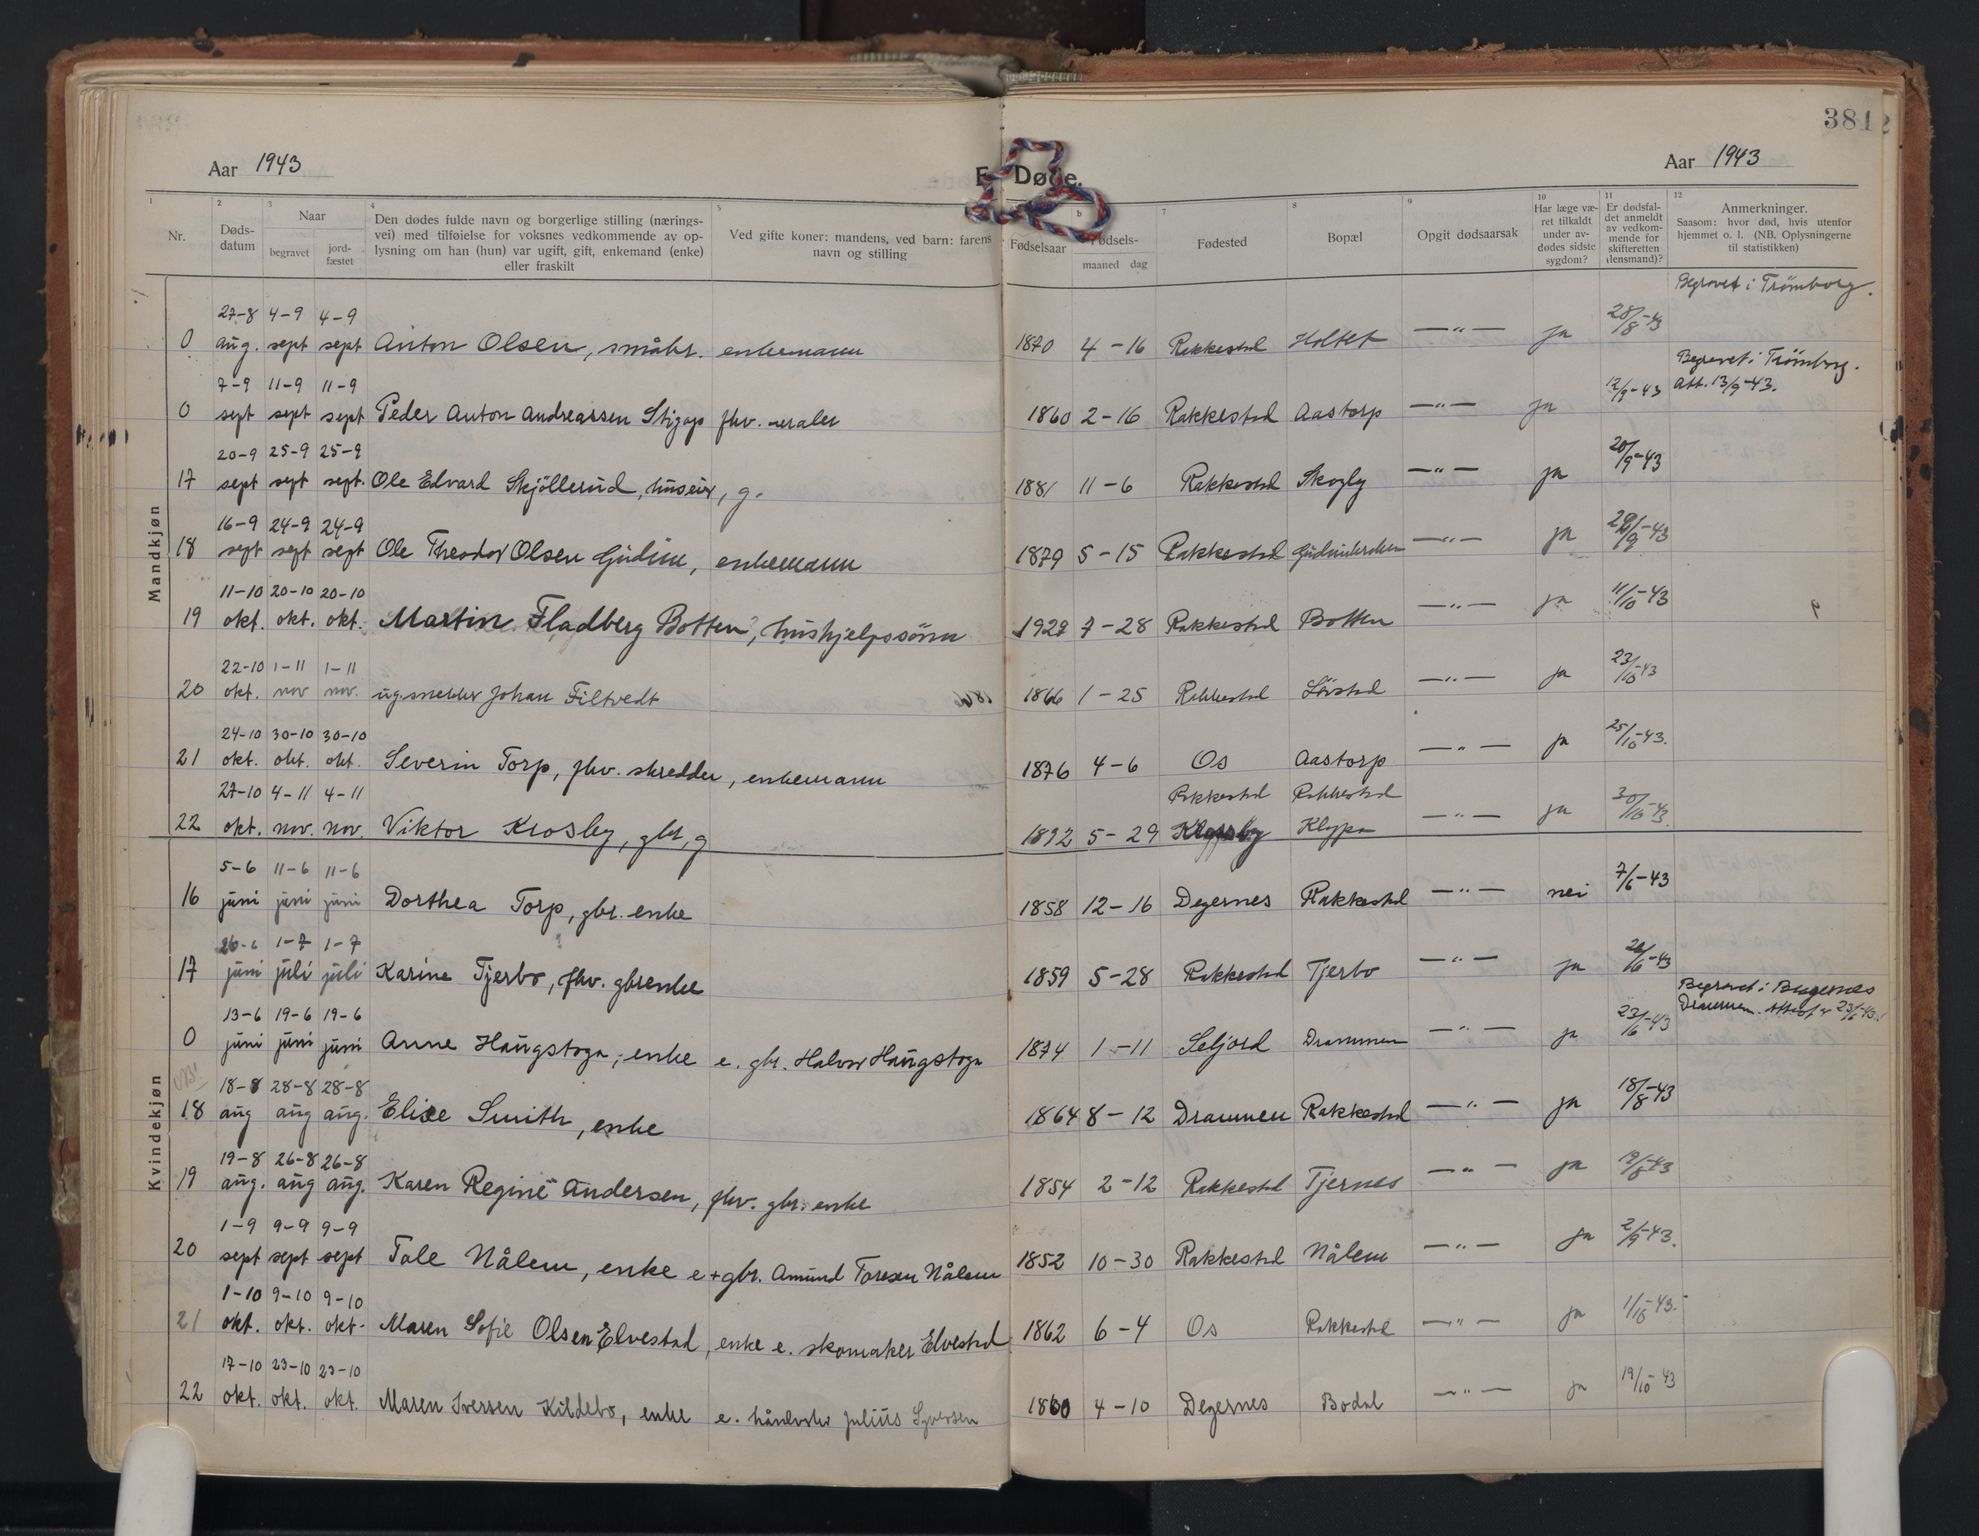 381
Aar 1943
E. Døde.
Aar 1943
1 2 3 4 5 b 7 8 9 10 11 12
Nr.
Døds-
datum
Naar
begravet
jord-
fæstet
Den dødes fulde navn og borgerlige stilling (nærings-
vei) med tilføielse for voksnes vedkommende av op-
lysning om han (hun) var ugift, gift, enkemand (enke)
eller fraskilt
Ved gifte koner: mandens, ved barn: farens
navn og stilling
Fødselsaar
Fødsels-
maaned dag
Fødested
Bopæl
Opgit dødsaarsak
Har læge væ-
ret tilkaldt
under av-
dødes sidste
sygdom?
Er dødsfal-
det anmeldt
av vedkom-
mende for
skifteretten
(lensmand)?
Anmerkninger.
Saasom: hvor død, hvis utenfor
hjemmet o. l. (NB. Oplysningerne
til statistikken)
Mandkjøn
27-8 4-9 4-9 28/8-43 Begravet i Trømborg.
0 aug. sept sept Anton Olsen, småbr. enkemann 1870 4-16 Rakkestad Holtet —"— ja
7-9 11-9 11-9 12/9-43 Begravet i Trømborg.
Att. 13/9-43.
0 sept sept sept Peder Anton Andreassen Stigap fhv. maler 1860 2-16 Rakkestad Aastorp —"— ja
20-9 25-9 25-9 20/9-43
17 sept sept sept. Ole Edvard Skjøllerud, huseier, g. 1881 11-6 Rakkestad Skogly —"— ja
16-9 24-9 24-9
18 sept sept sept Ole Theodor Olsen Gudim, enkemann 1879 5-15 Rakkestad —"— ja
11-10 20-10 20-10 11/10-43
19 okt. okt. okt. Martin Fladberg Botten, hushjelpssønn 1929 7-28 Rakkestad Botten —"— ja
22-10 1-11 1-11 23/10-43
20 okt. nov nov. ug. snekker Johan Filtvedt 1866 1-25 Rakkestad Lövstad —"— ja
24-10 30-10 30-10 25/10-43.
21 okt. okt. okt. Severin Torp, fhv. skredder, enkemann 1876 4-6 Os Aastorp —"— ja
27-10 4-11 4-11 Rakkestad Rakkestad 30/10-43.
22 okt. nov. nov. Viktor Krosby, gbr, g 1892 5-29 Klypa —"— ja
Kvindekjøn
5-6 11-6 11-6 7/6-43
16 juni juni juni Dorthea Torp, gbr. enke 1858 12-16 Degernes Rakkestad —"— nei
26-6 1-7 1-7 26/6-43
17 juni juli juli Karine Tjerbo, fhv. gbrenke 1859 5-28 Rakkestad Tjerbo —"— ja
13-6 19-6 19-6 23/6-43 Begravet i Bragernes
Drammen. Attest 23/6-43.
0 juni juni juni Anne Haugstoga, enke e. gbr. Halvor Haugstoga 1874 1-11 Seljord Drammen —"— ja
18-8 28-8 28-8 18/8-43
18 aug aug aug. Elise Smith, enke 1864 8-12 Drammen Rakkestad —"— ja
19-8 26-8 26-8 19/8-43
19 aug. aug aug. Karen Regine Andersen, fhv. gbr. enke 1854 2-12 Rakkestad Tjernes —"— ja
1-9 9-9 9-9 2/9-43.
20 sept sept sept Tale Nålem, enke e + gbr. Amund Toresen Nålem 1852 10-30 Rakkestad Nålem —"— ja
1-10 9-10 9-10 1/10-43.
21 okt. okt. okt. Maren Sofie Olsen Elvestad, enke e. skomaker Elvestad 1862 6-4 Os Rakkestad —"— ja
17-10 23-10 23-10 19/10-43
22 okt. okt. okt. Maren Iversen Kildebo, enke e. Julius Syversen 1860 4-10 Degernes Bodal —"— ja